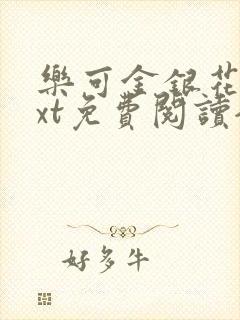 樂可金銀花
xt免費閱讀
好多牛